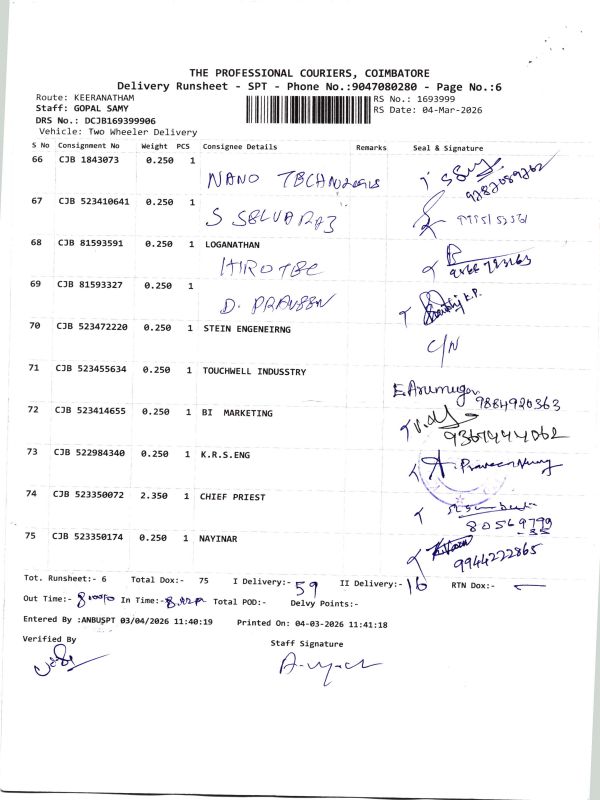 THE PROFESSIONAL COURIERS, COIMBATORE
Delivery Runsheet - SPT - Phone No.:9047080280 - Page No.:6
Route: KEERANATHAM RS No.: 1693999
Staff: GOPAL SAMY RS Date: 04-Mar-2026
DRS No.: DCJB169399906
Vehicle: Two Wheeler Delivery
S No Consignment No Weight PCS Consignee Details Remarks Seal & Signature
66 CJB 1843073 0.250 1
NANO
67 CJB 523410641 0.250 1
S SELVARAJ
68 CJB 81593591 0.250 1 LOGANATHAN
HIROTEC
69 CJB 81593327 0.250 1
D. PRAVEEN
70 CJB 523472220 0.250 1 STEIN ENGENEIRNG
C/N
71 CJB 523455634 0.250 1 TOUCHWELL INDUSSTRY
E. Arumugam 9884920363
72 CJB 523414655 0.250 1 BI MARKETING
9367444062
73 CJB 522984340 0.250 1 K.R.S.ENG
74 CJB 523350072 2.350 1 CHIEF PRIEST
80569799
-35
75 CJB 523350174 0.250 1 NAYINAR
9944222865
Tot. Runsheet:- 6 Total Dox:- 75 I Delivery:- 59 II Delivery:- 16 RTN Dox:- —
Out Time:- In Time:- Total POD:- Delvy Points:-
Entered By :ANBUSPT 03/04/2026 11:40:19 Printed On: 04-03-2026 11:41:18
Verified By Staff Signature